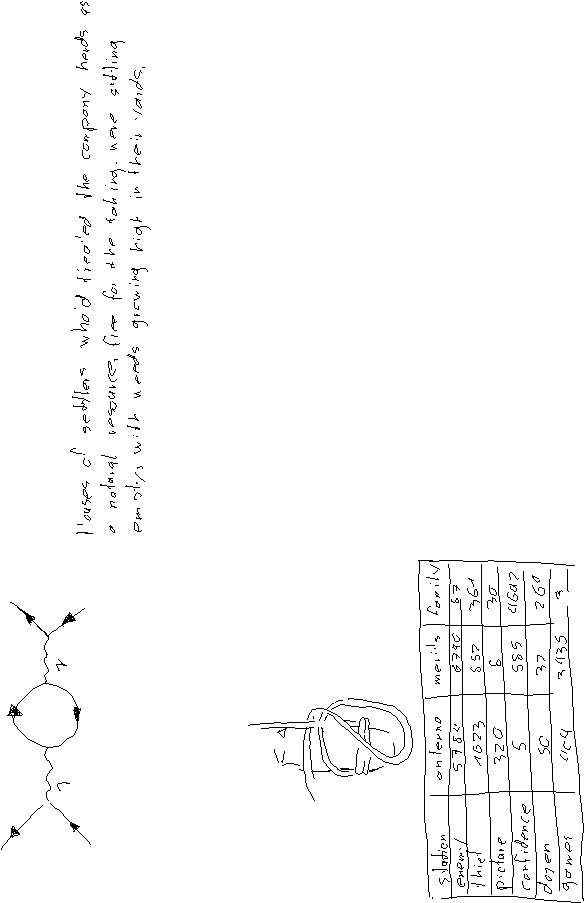 Houses of settlers who'd treated the company herds as
a natural resource, free for the taking, were sitting
empty, with weeds growing high in their yards.
γ γ
station antenna merits family
enemy 5784 6790 67
thief 1623 657 361
picture 320 6 30
confidence 5 585 4692
dozen 50 37 260
games 3935 3